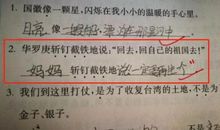 国徽像一颗星,闪烁在我小小的温暖的手心里。
月亮 像 一
2. 华罗庚斩钉截铁地说,“回去,回自己的祖国去!”
妈妈 斩钉截铁地说“ 一定 ”
3. 我们到这里打仗,是为了收复台湾的土地,不是为
金子、银子。